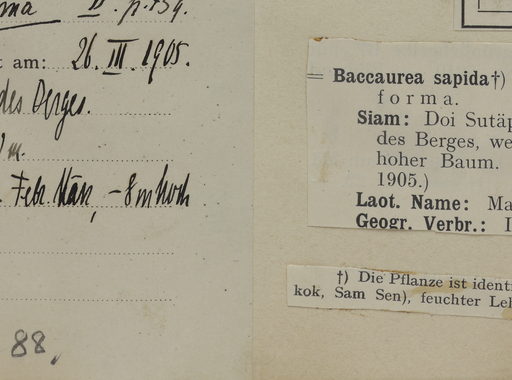 II. p. 159.
t am: 26. III. 1905.
des Berges.
m.
Febr. März, – 8 m hoch
88,
= Baccaurea sapida†)
forma.
Siam: Doi Sutäp
des Berges, we
hoher Baum.
1905.)
Laot. Name: Ma
Geogr. Verbr.: I
†) Die Pflanze ist identi
kok, Sam Sen), feuchter Leh